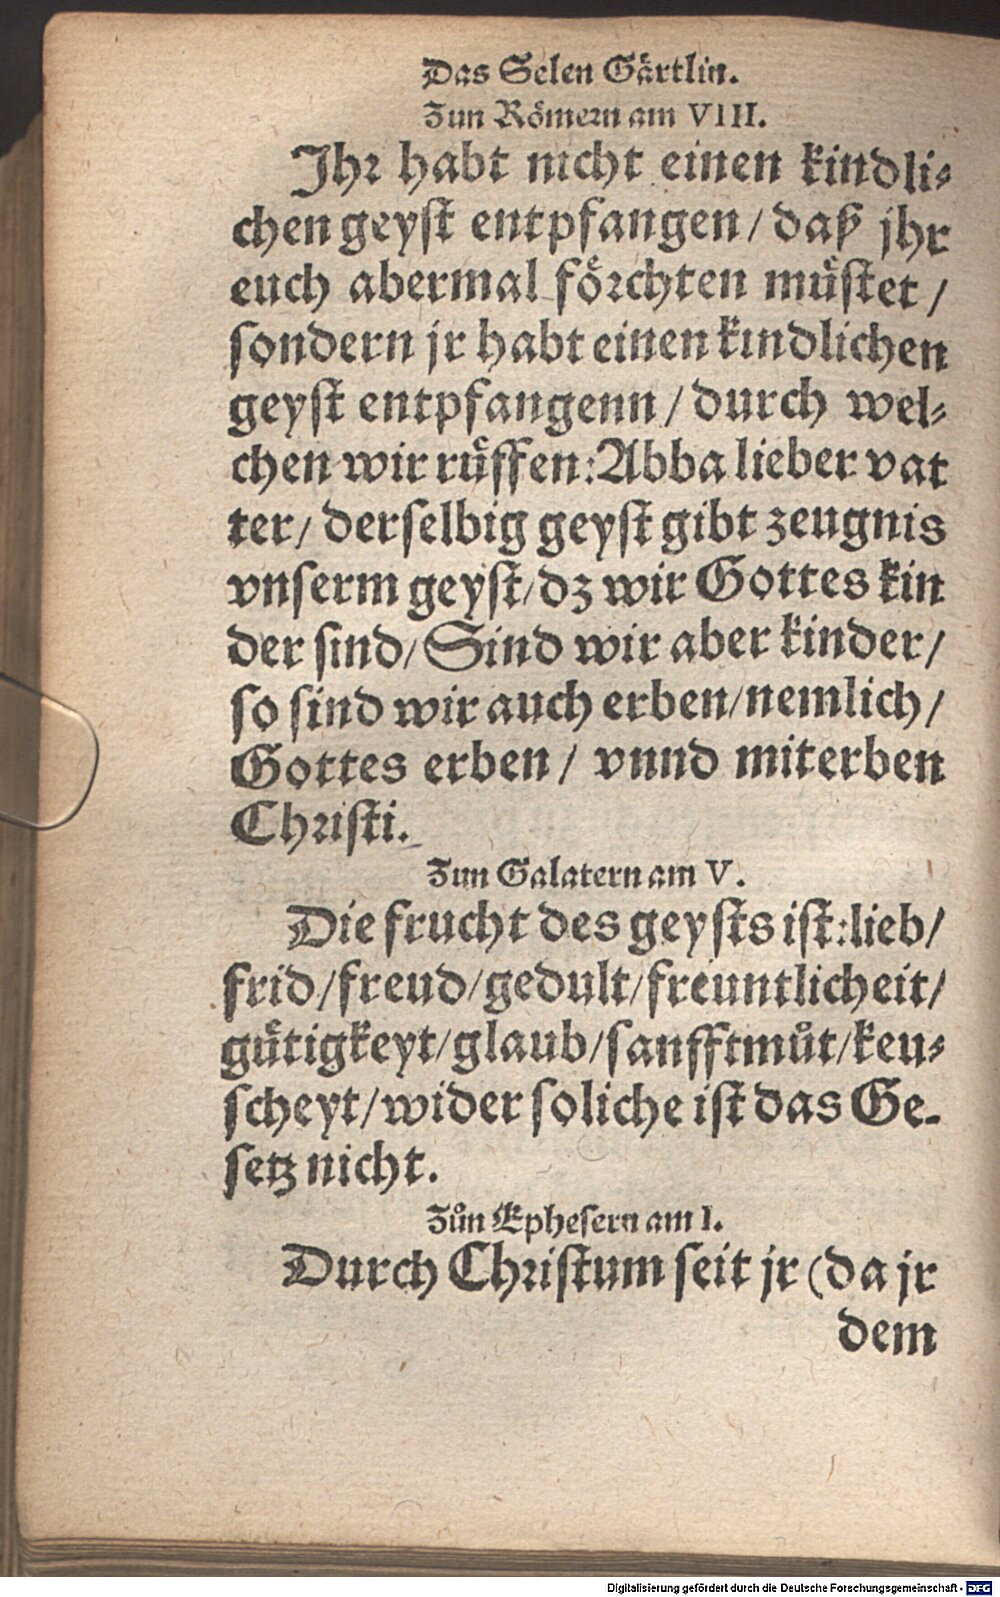 Das Selen Gärtlin.
Zun Römern am VIII.
Ihr habt nicht einen kindli⸗
chen geyst entpfangen / daß jhr
euch abermal förchten müstet /
sondern jr habt einen kindlichen
geyst entpfangenn / durch wel⸗
chen wir rüffen: Abba lieber vat
ter / derselbig geyst gibt zeugnis
vnserm geyst / dz wir Gottes kin
der sind / Sind wir aber kinder /
so sind wir auch erben / nemlich /
Gottes erben / vnnd miterben
Christi.
Zun Galatern am V.
Die frucht des geysts ist: lieb /
frid / freud / gedult / freuntlicheit /
gütigkeyt / glaub / sanfftmůt / keu⸗
scheyt / wider soliche ist das Ge⸗
setz nicht.
Zůn Ephesern am I.
Durch Christum seit jr (da jr
dem
Digitalisierung gefördert durch die Deutsche Forschungsgemeinschaft - DFG